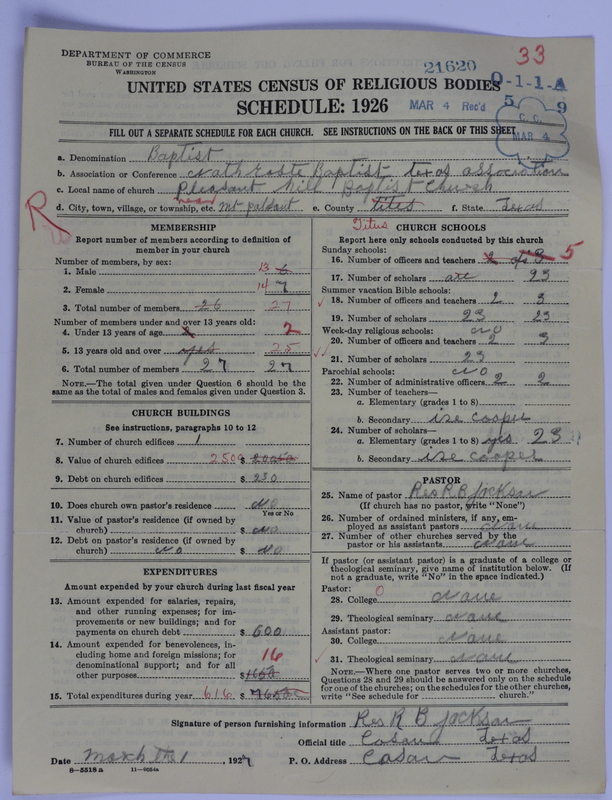 DEPARTMENT OF COMMERCE
BUREAU OF THE CENSUS
WASHINGTON
21620
33
0-1-1-A
UNITED STATES CENSUS OF RELIGIOUS BODIES
SCHEDULE: 1926
MAR 4 Rec'd
5 9
C. C.
MAR 4
FILL OUT A SEPARATE SCHEDULE FOR EACH CHURCH. SEE INSTRUCTIONS ON THE BACK OF THIS SHEET
a. Denomination Baptist
b. Association or Conference Baptist texas association
c. Local name of church Pleasant hill Baptist Church
R
d. City, town, village, or township, etc. near Mt palsant e. County titus f. State Texas
Titus
MEMBERSHIP
Report number of members according to definition of member in your church
Number of members, by sex:
1. Male 13 6
2. Female 14 7
3. Total number of members 26 27
Number of members under and over 13 years old:
4. Under 13 years of age 2
5. 13 years old and over yes 25
6. Total number of members 27 27
NOTE.—The total given under Question 6 should be the same as the total of males and females given under Question 3.
CHURCH BUILDINGS
See instructions, paragraphs 10 to 12
7. Number of church edifices 1
8. Value of church edifices 2500 $
9. Debt on church edifices $ 230
10. Does church own pastor's residence NO
Yes or No
11. Value of pastor's residence (if owned by church) $ NO
12. Debt on pastor's residence (if owned by church) NO $ NO
EXPENDITURES
Amount expended by your church during last fiscal year
13. Amount expended for salaries, repairs, and other running expenses; for improvements or new buildings; and for payments on church debt $ 600
14. Amount expended for benevolences, including home and foreign missions; for denominational support; and for all other purposes 16 $
15. Total expenditures during year 616 $
CHURCH SCHOOLS
Report here only schools conducted by this church
Sunday schools:
16. Number of officers and teachers 2 3 5
17. Number of scholars are 23
Summer vacation Bible schools:
18. Number of officers and teachers 2 3
19. Number of scholars 23 23
Week-day religious schools: NO
20. Number of officers and teachers 2 3
21. Number of scholars 23
Parochial schools: NO
22. Number of administrative officers 2 2
23. Number of teachers—
a. Elementary (grades 1 to 8)
b. Secondary ise cooper
24. Number of scholars—
a. Elementary (grades 1 to 8) yes 23
b. Secondary ise cooper
PASTOR
25. Name of pastor Res R B Jackson
(If church has no pastor, write "None")
26. Number of ordained ministers, if any, employed as assistant pastors None
27. Number of other churches served by the pastor or his assistants None
If pastor (or assistant pastor) is a graduate of a college or theological seminary, give name of institution below. (If not a graduate, write "No" in the space indicated.)
Pastor: 0
28. College None
29. Theological seminary None
Assistant pastor:
30. College None
31. Theological seminary None
NOTE.—Where one pastor serves two or more churches, Questions 28 and 29 should be answered only on the schedule for one of the churches; on the schedules for the other churches, write "See schedule for church."
Signature of person furnishing information Res R B Jackson
Official title Cason Texas
Date March the 1, 1927 P. O. Address Cason Texas
8-5518 a 11-9054a